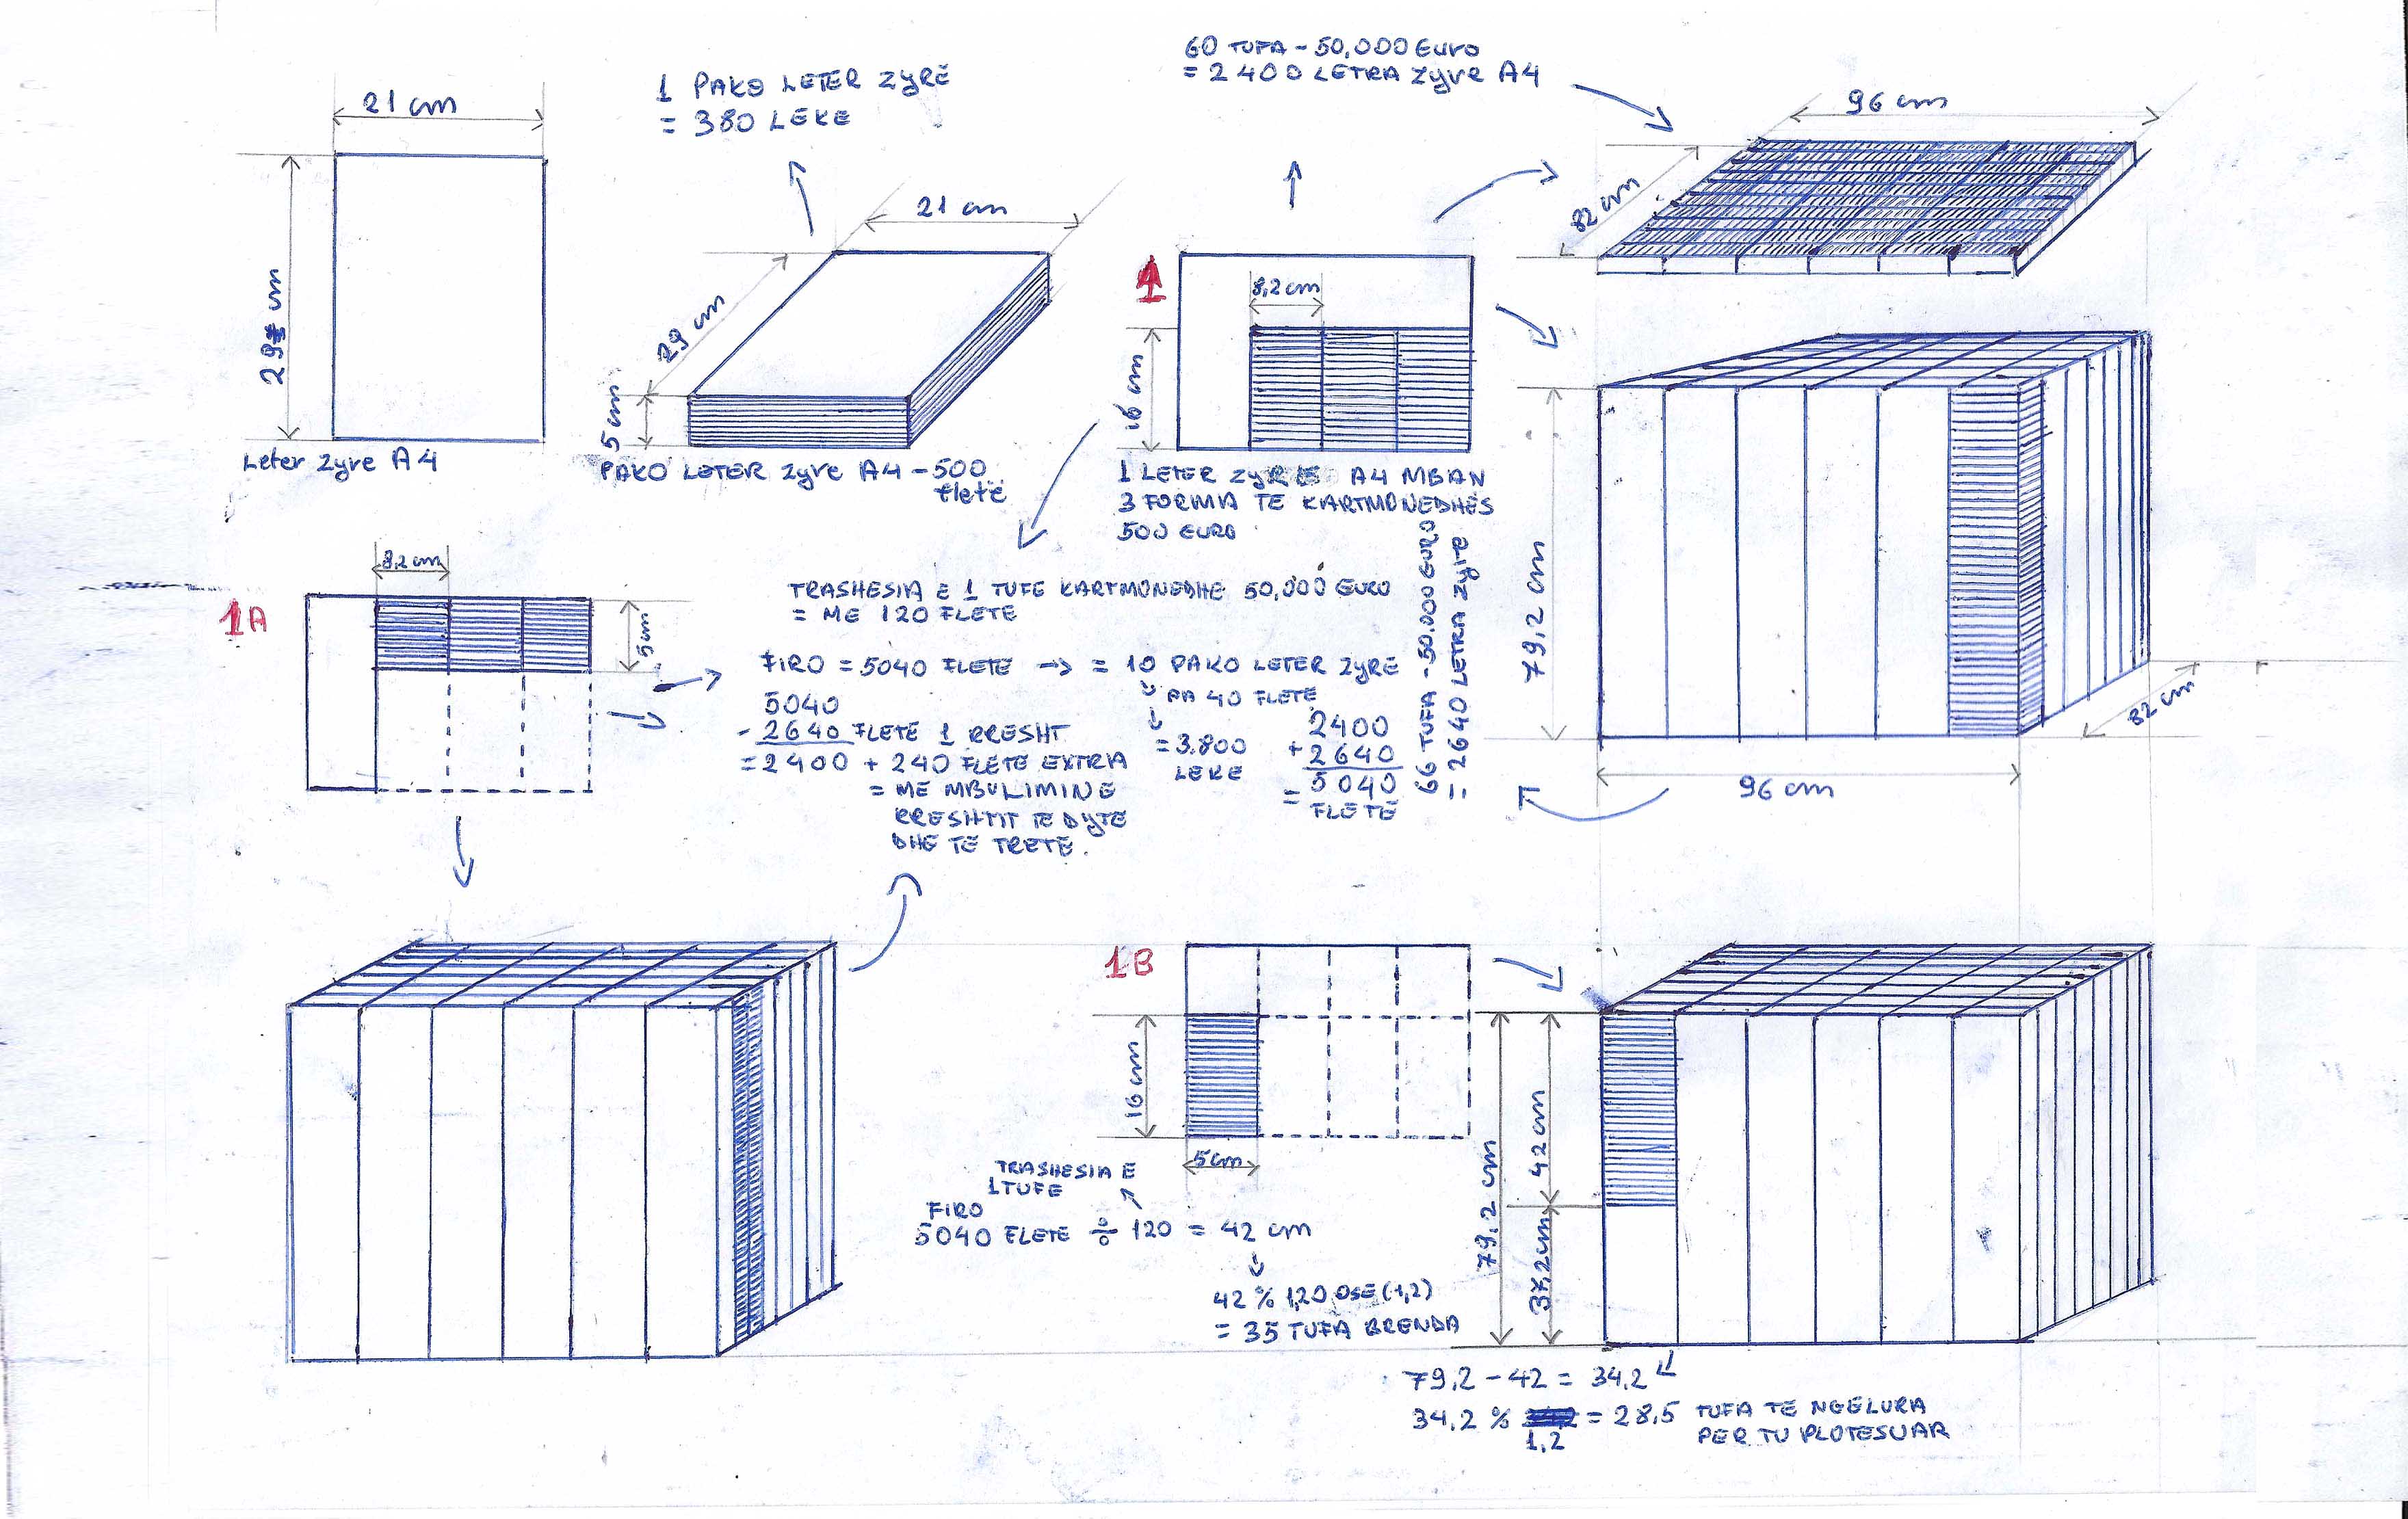 21 cm
29 cm
Leter Zyre A4
1 PAKO LETER ZYRË
= 380 LEKE
21 cm
29 cm
5 cm
PAKO LETER Zyre A4 - 500
fletë
60 TUFA - 50,000 Euro
= 2400 LETRA Zyre A4
1
8,2 cm
16 cm
1 LETER ZYRE A4 MBAN
3 FORMA TE KARTMONEDHËS
500 EURO
96 cm
82 cm
79,2 cm
82 cm
96 cm
66 TUFA - 50.000 EURO
= 2640 LETRA Zyre
1A
8,2 cm
5 cm
TRASHESIA E 1 TUFE KARTMONEDHE 50,000 EURO
= ME 120 FLETE
FIRO = 5040 FLETE → = 10 PAKO LETER ZYRE
PA 40 FLETE
= 3.800
LEKE
5040
- 2640 FLETE 1 RRESHT
= 2400 + 240 FLETE EXTRA
= ME MBULIMIN E
RRESHTIT TE DYTE
DHE TE TRETE.
2400
+ 2640
= 5040
FLETË
1B
16 cm
5 cm
TRASHESIA E
1 TUFE
FIRO
5040 FLETE ÷ 120 = 42 cm
42 % 1,20 OSE (1,2)
= 35 TUFA BRENDA
79,2 cm
42 cm
37,2 cm
79,2 - 42 = 34,2
34,2 % = 28,5 TUFA TE NGELURA
1,2 PER TU PLOTESUAR